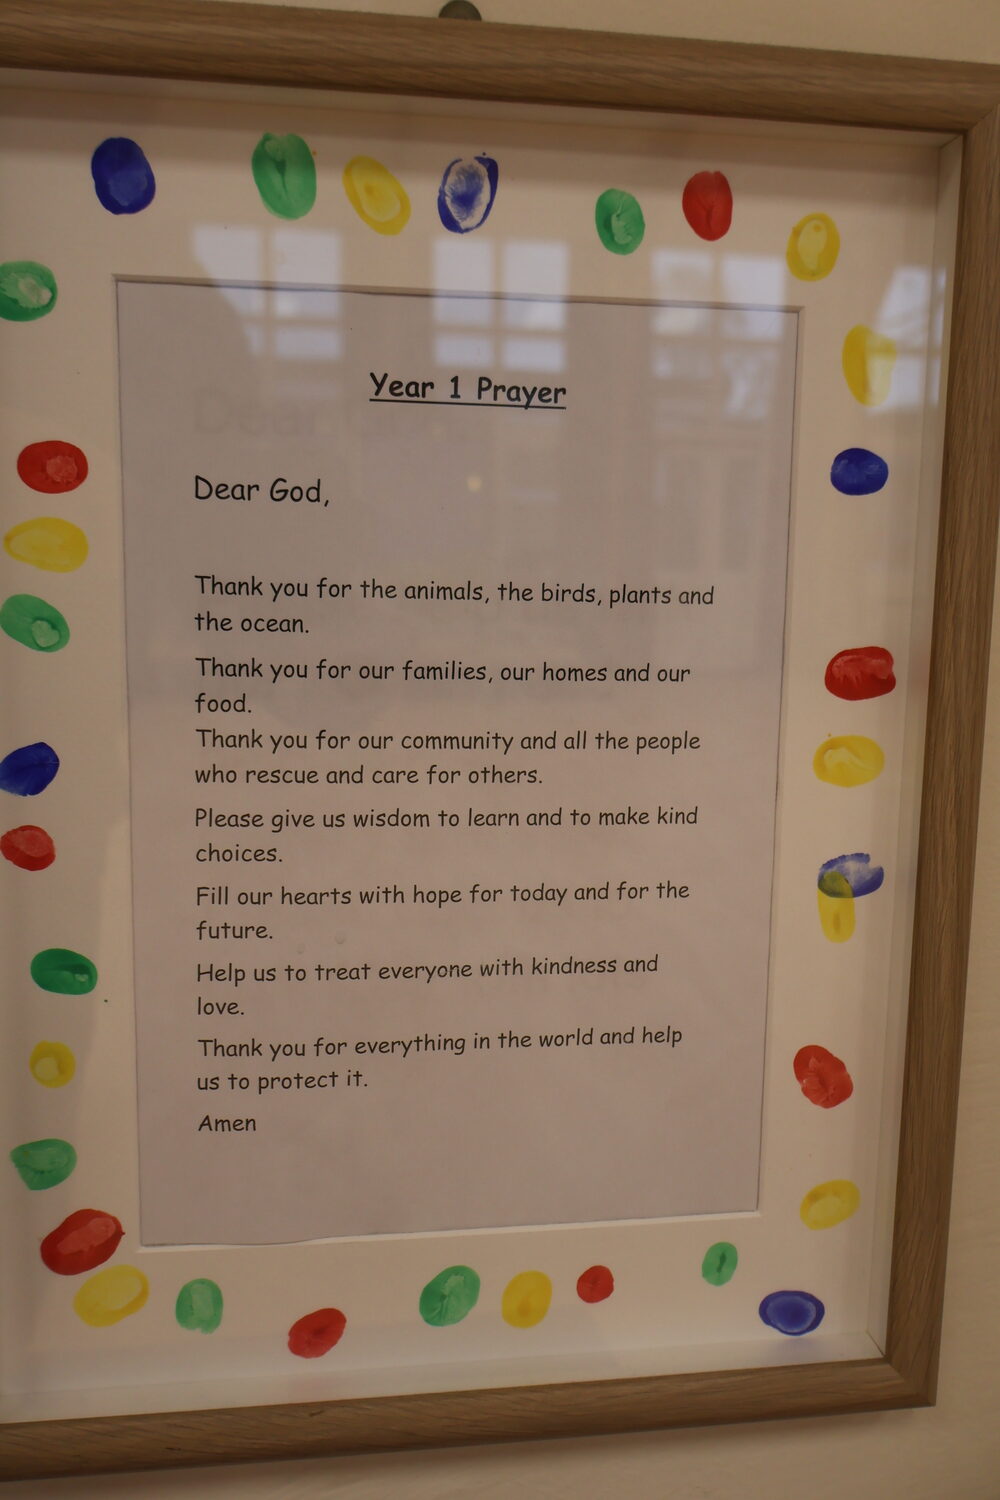 Year 1 Prayer
Dear God,
Thank you for the animals, the birds, plants and
the ocean.
Thank you for our families, our homes and our
food.
Thank you for our community and all the people
who rescue and care for others.
Please give us wisdom to learn and to make kind
choices.
Fill our hearts with hope for today and for the
future.
Help us to treat everyone with kindness and
love.
Thank you for everything in the world and help
us to protect it.
Amen